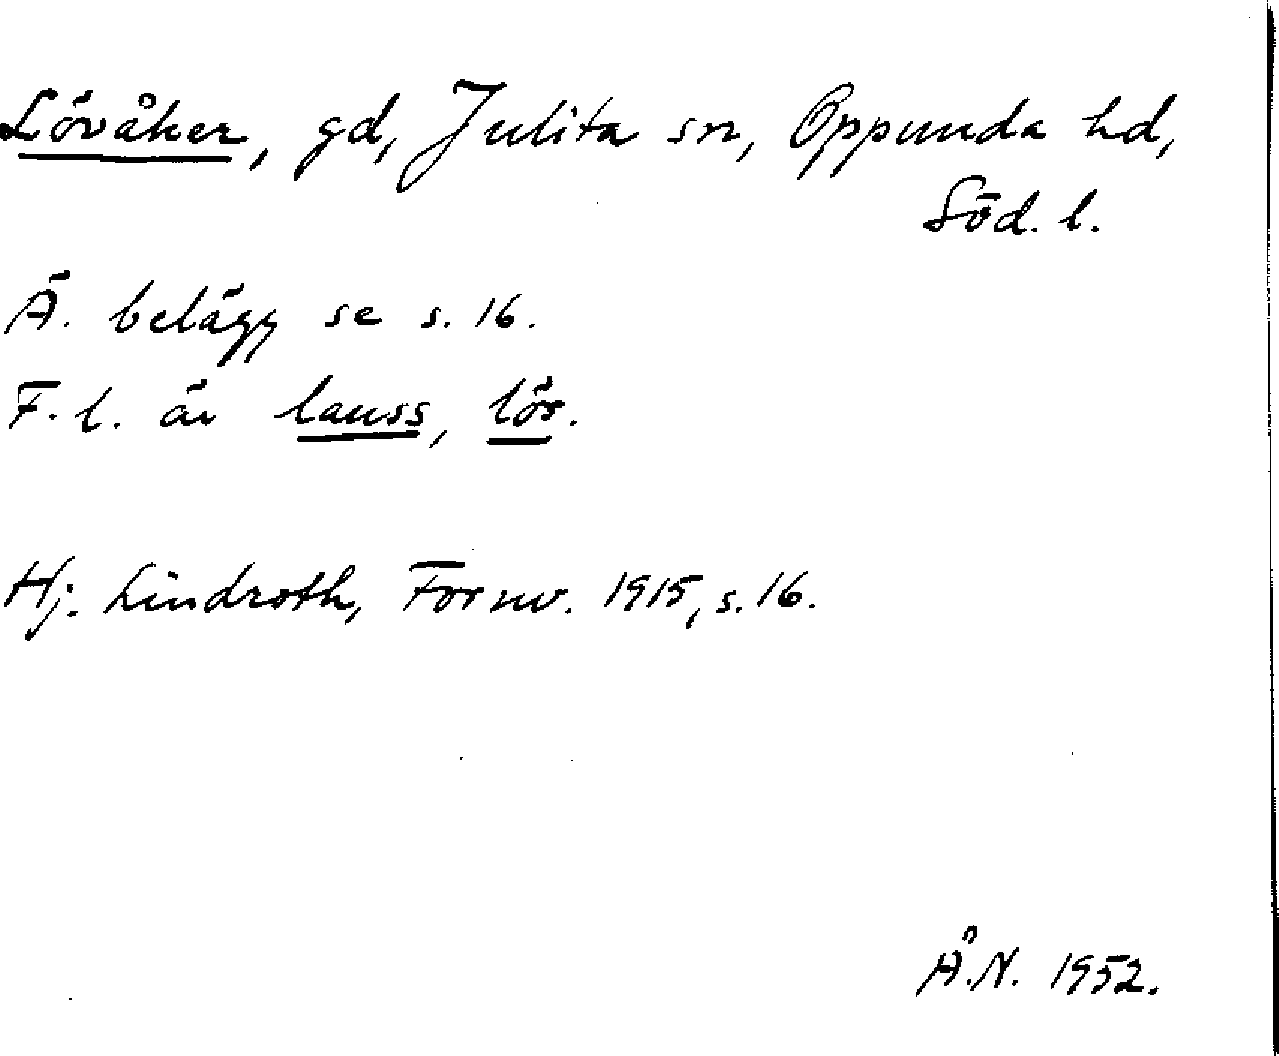 Lövåker, gd, Julita sn, Oppunda hd,
Söd. l.
Ä. belägg se s. 16.
F. l. är lauss, lös.
Hj. Lindroth, Fornv. 1915, s. 16.
Å.N. 1952.